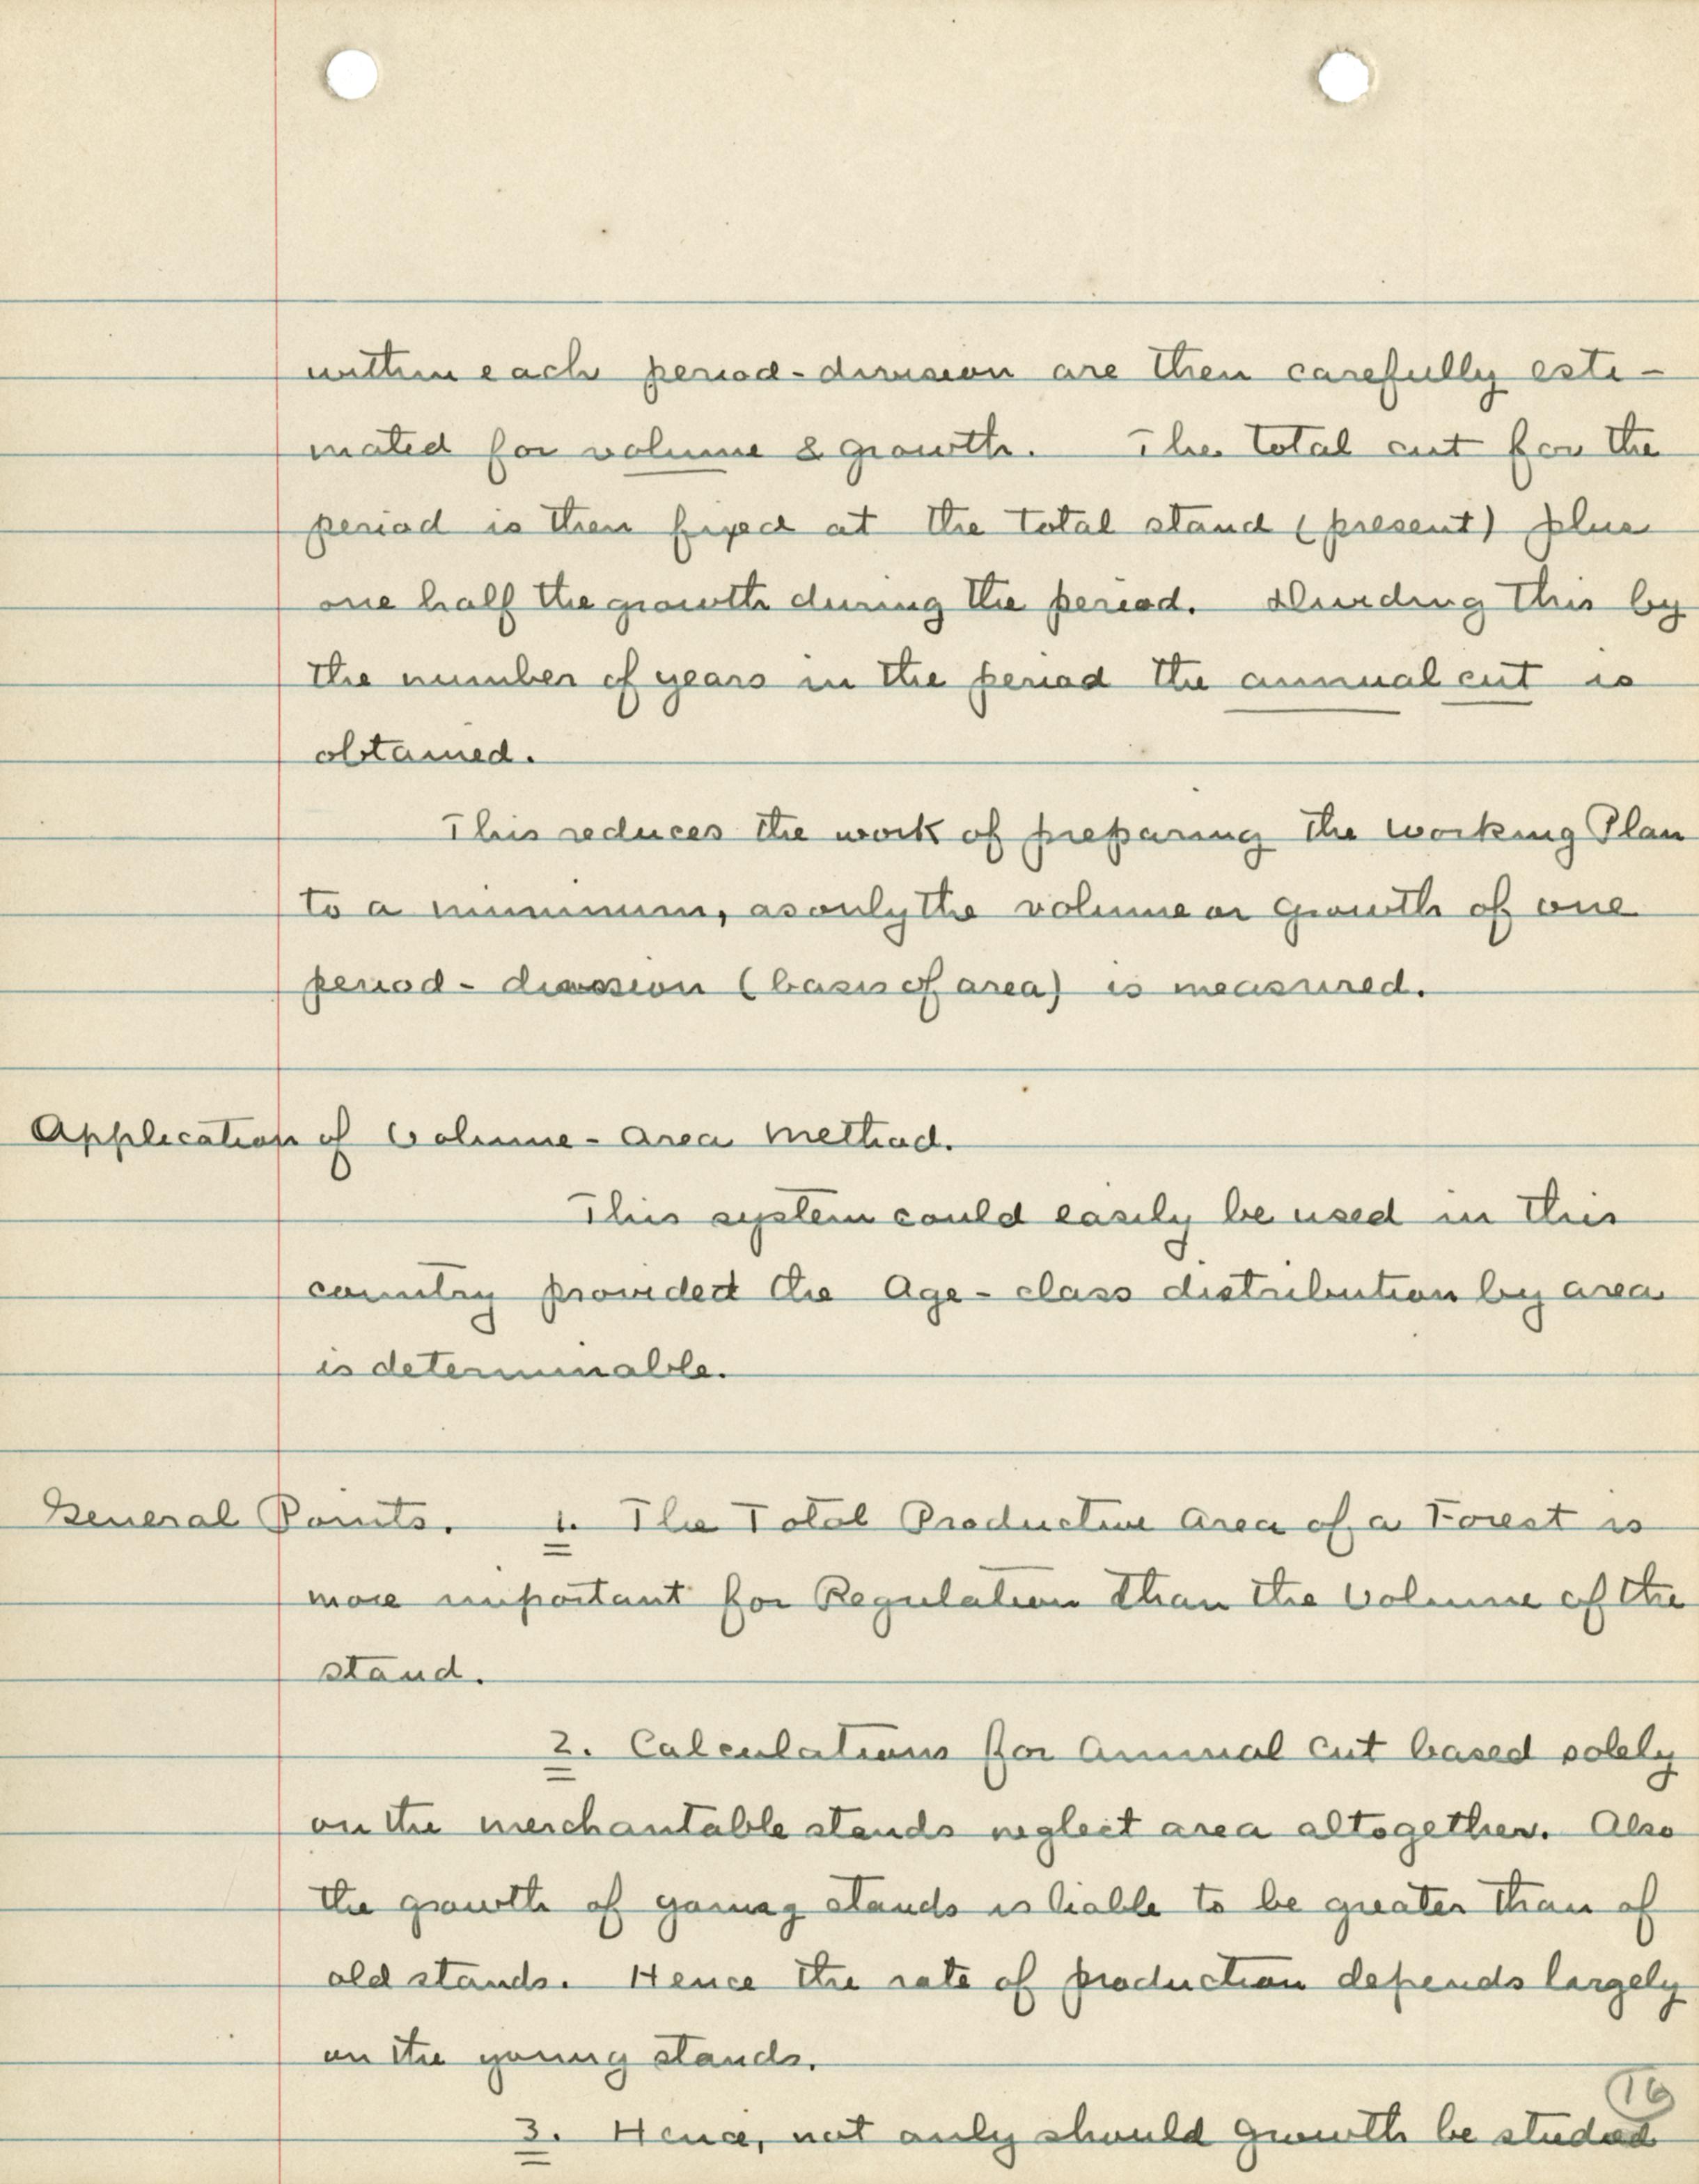 within each period-division are then carefully esti-
mated for volume & growth. The total cut for the
period is then fixed at the total stand (present) plus
one half the growth during the period. Dividing this by
the number of years in the period the annual cut is
obtained.
This reduces the work of preparing the Working Plan
to a minimum, as only the volume or growth of one
period-division (basis of area) is measured.
Application of Volume-Area Method.
This system could easily be used in this
country provided the Age-class distribution by area
is determinable.
General Points. 1. The Total Productive Area of a Forest is
more important for Regulation than the Volume of the
stand.
2. Calculations for Annual Cut based solely
on the merchantable stands neglect area altogether. Also
the growth of young stands is liable to be greater than of
old stands. Hence the rate of production depends largely
on the young stands.
16
3. Hence, not only should growth be studied